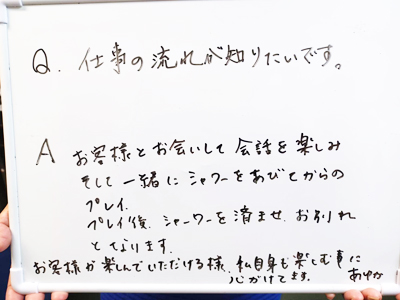 Q. 仕事の流れが知りたいです。
A お客様とお会いして会話を楽しみ
そして一緒にシャワーをあびてからの
プレイ。
プレイ後、シャーワーを済ませ、お別れ
となります。
お客様が楽しんでいただける様、私自身も楽しむ事に
心がけてます。 あやか